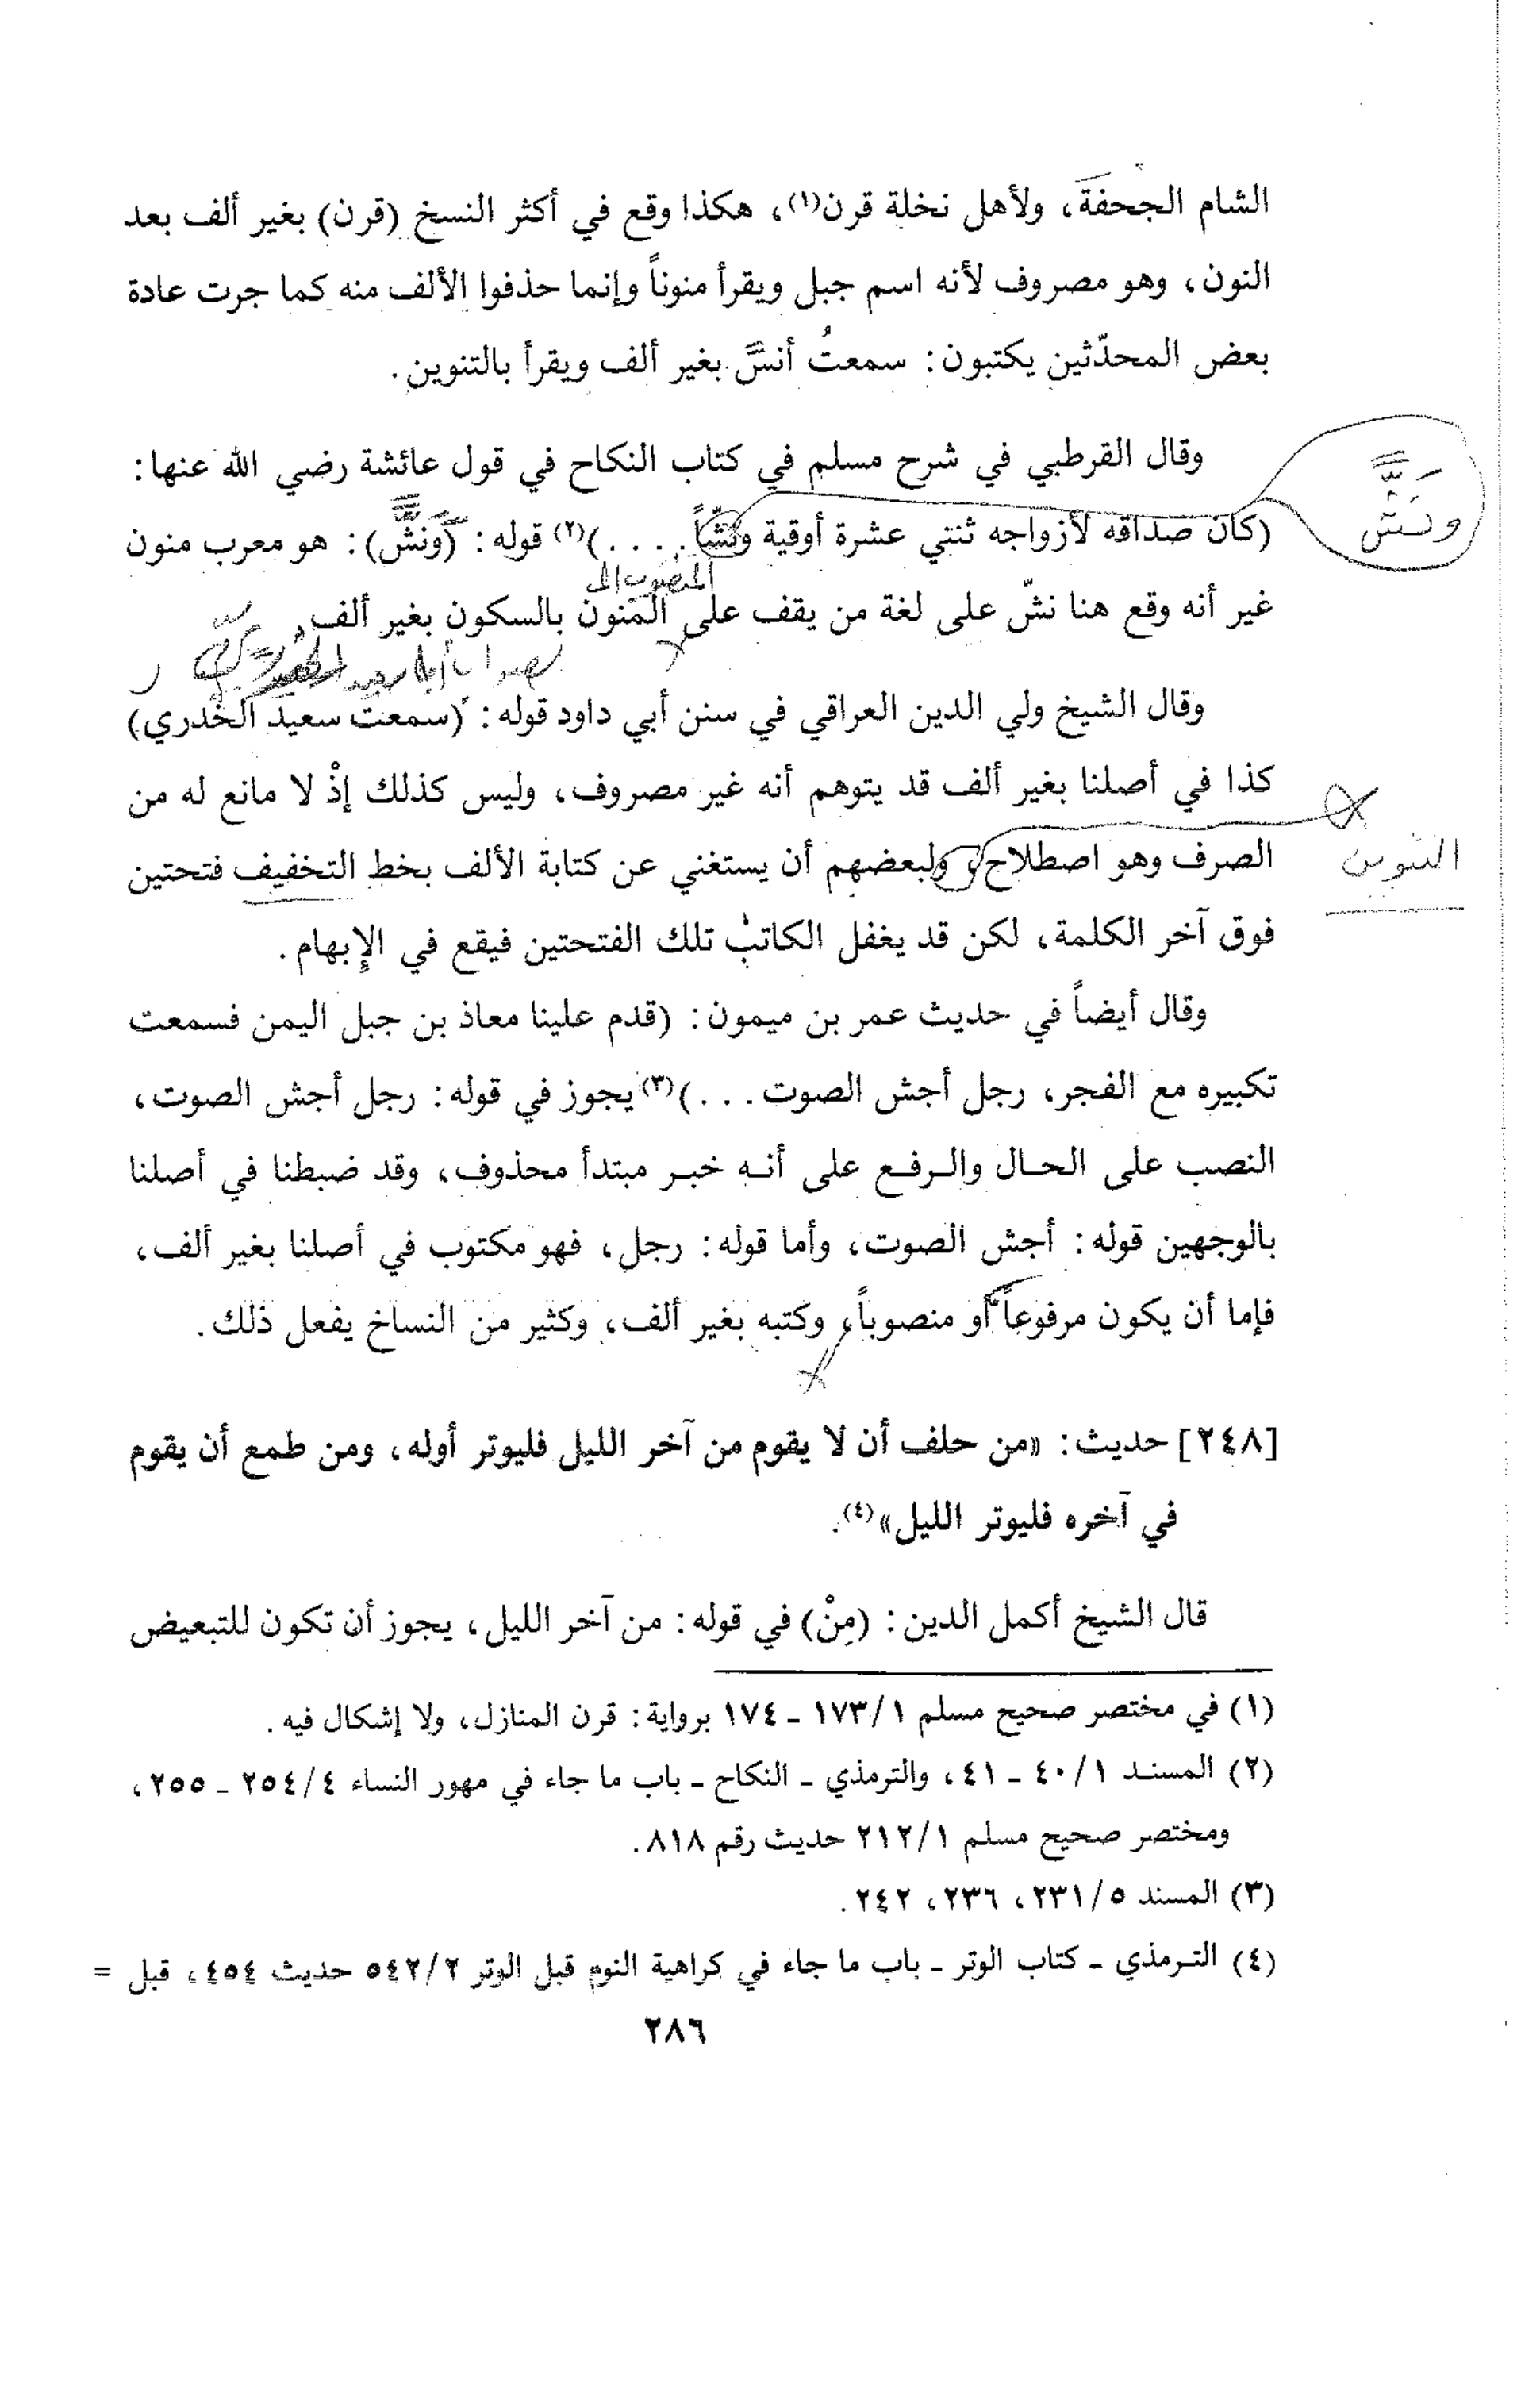 الشام الجحفةَ، ولأهل نخلة قرن(١)، هكذا وقع في أكثر النسخ (قرن) بغير ألف بعد
النون، وهو مصروف لأنه اسم جبل ويقرأ منوناً وإنما حذفوا الألف منه كما جرت عادة
بعض المحدّثين يكتبون: سمعتُ أنسًّ بغير ألف ويقرأ بالتنوين.
وقال القرطبي في شرح مسلم في كتاب النكاح في قول عائشة رضي الله عنها:
ونَشًّ
(كان صداقه لأزواجه ثنتي عشرة أوقية ونشّاً. . . .)(٢) قوله: (وَنشًّ): هو معرب منون
المنصوب
غير أنه وقع هنا نشّ على لغة من يقف على المنون بالسكون بغير ألف.
وقال الشيخ ولي الدين العراقي في سنن أبي داود قوله: (سمعت سعيد الخدري)
كذا في أصلنا بغير ألف قد يتوهم أنه غير مصروف، وليس كذلك إذْ لا مانع له من
الصرف وهو اصطلاح ولبعضهم أن يستغني عن كتابة الألف بخط التخفيف فتحتين
التنوين
فوق آخر الكلمة، لكن قد يغفل الكاتب تلك الفتحتين فيقع في الإبهام.
وقال أيضاً في حديث عمر بن ميمون: (قدم علينا معاذ بن جبل اليمن فسمعت
تكبيره مع الفجر، رجل أجش الصوت. . .)(٣) يجوز في قوله: رجل أجش الصوت،
النصب على الحال والرفع على أنه خبر مبتدأ محذوف، وقد ضبطنا في أصلنا
بالوجهين قوله: أجش الصوت، وأما قوله: رجل، فهو مكتوب في أصلنا بغير ألف،
فإما أن يكون مرفوعاً أو منصوباً، وكتبه بغير ألف، وكثير من النساخ يفعل ذلك.
[٢٤٨] حديث: «من حلف أن لا يقوم من آخر الليل فليوتر أوله، ومن طمع أن يقوم
في آخره فليوتر الليل»(٤).
قال الشيخ أكمل الدين: (مِنْ) في قوله: من آخر الليل، يجوز أن تكون للتبعيض
(١) في مختصر صحيح مسلم ١/ ١٧٣ ـ ١٧٤ برواية: قرن المنازل، ولا إشكال فيه.
(٢) المسند ١/ ٤٠ ـ ٤١، والترمذي ـ النكاح ـ باب ما جاء في مهور النساء ٤/ ٢٥٤ ـ ٢٥٥،
ومختصر صحيح مسلم ١/ ٢١٢ حديث رقم ٨١٨.
(٣) المسند ٥/ ٢٣١، ٢٣٦، ٢٤٢.
(٤) الترمذي ـ كتاب الوتر ـ باب ما جاء في كراهية النوم قبل الوتر ٢/ ٥٤٢ حديث ٤٥٤، قبل =
٢٨٦